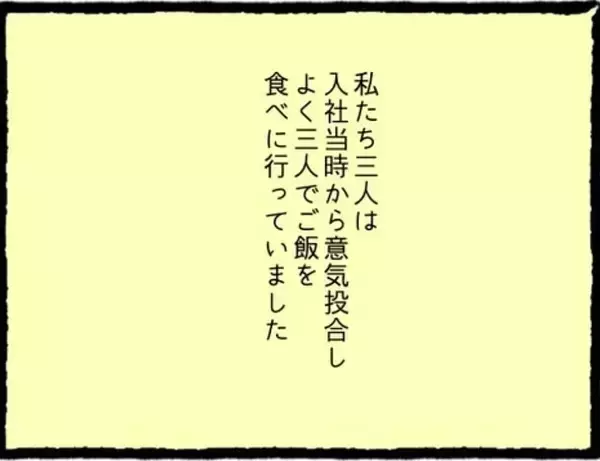 私たち三人は
入社当時から意気投合し
よく三人でご飯を
食べに行っていました